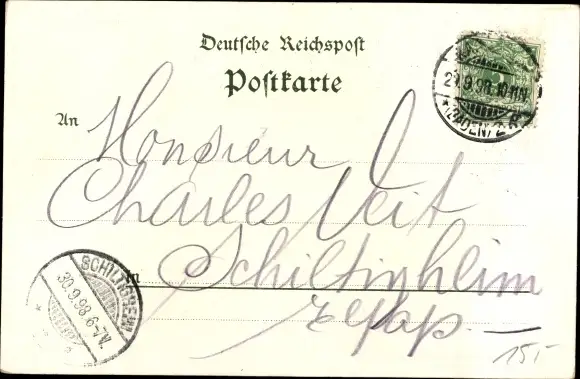 Deutsche Reichspost
Postkarte
An
Monsieur
Charles Veit
in Schiltigheim
29.9.98.10-11N.
*(BADEN)2.R.
SCHILTIGHEIM
30.9.98.6-7V.
15,-